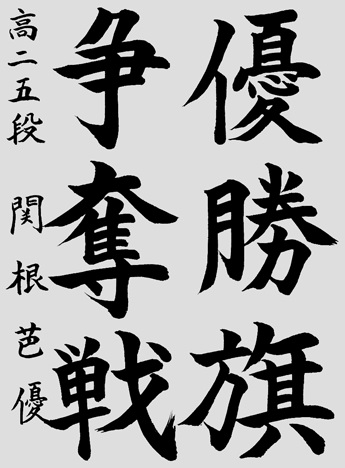 優勝旗
争奪戦
高二五段 関根芭優